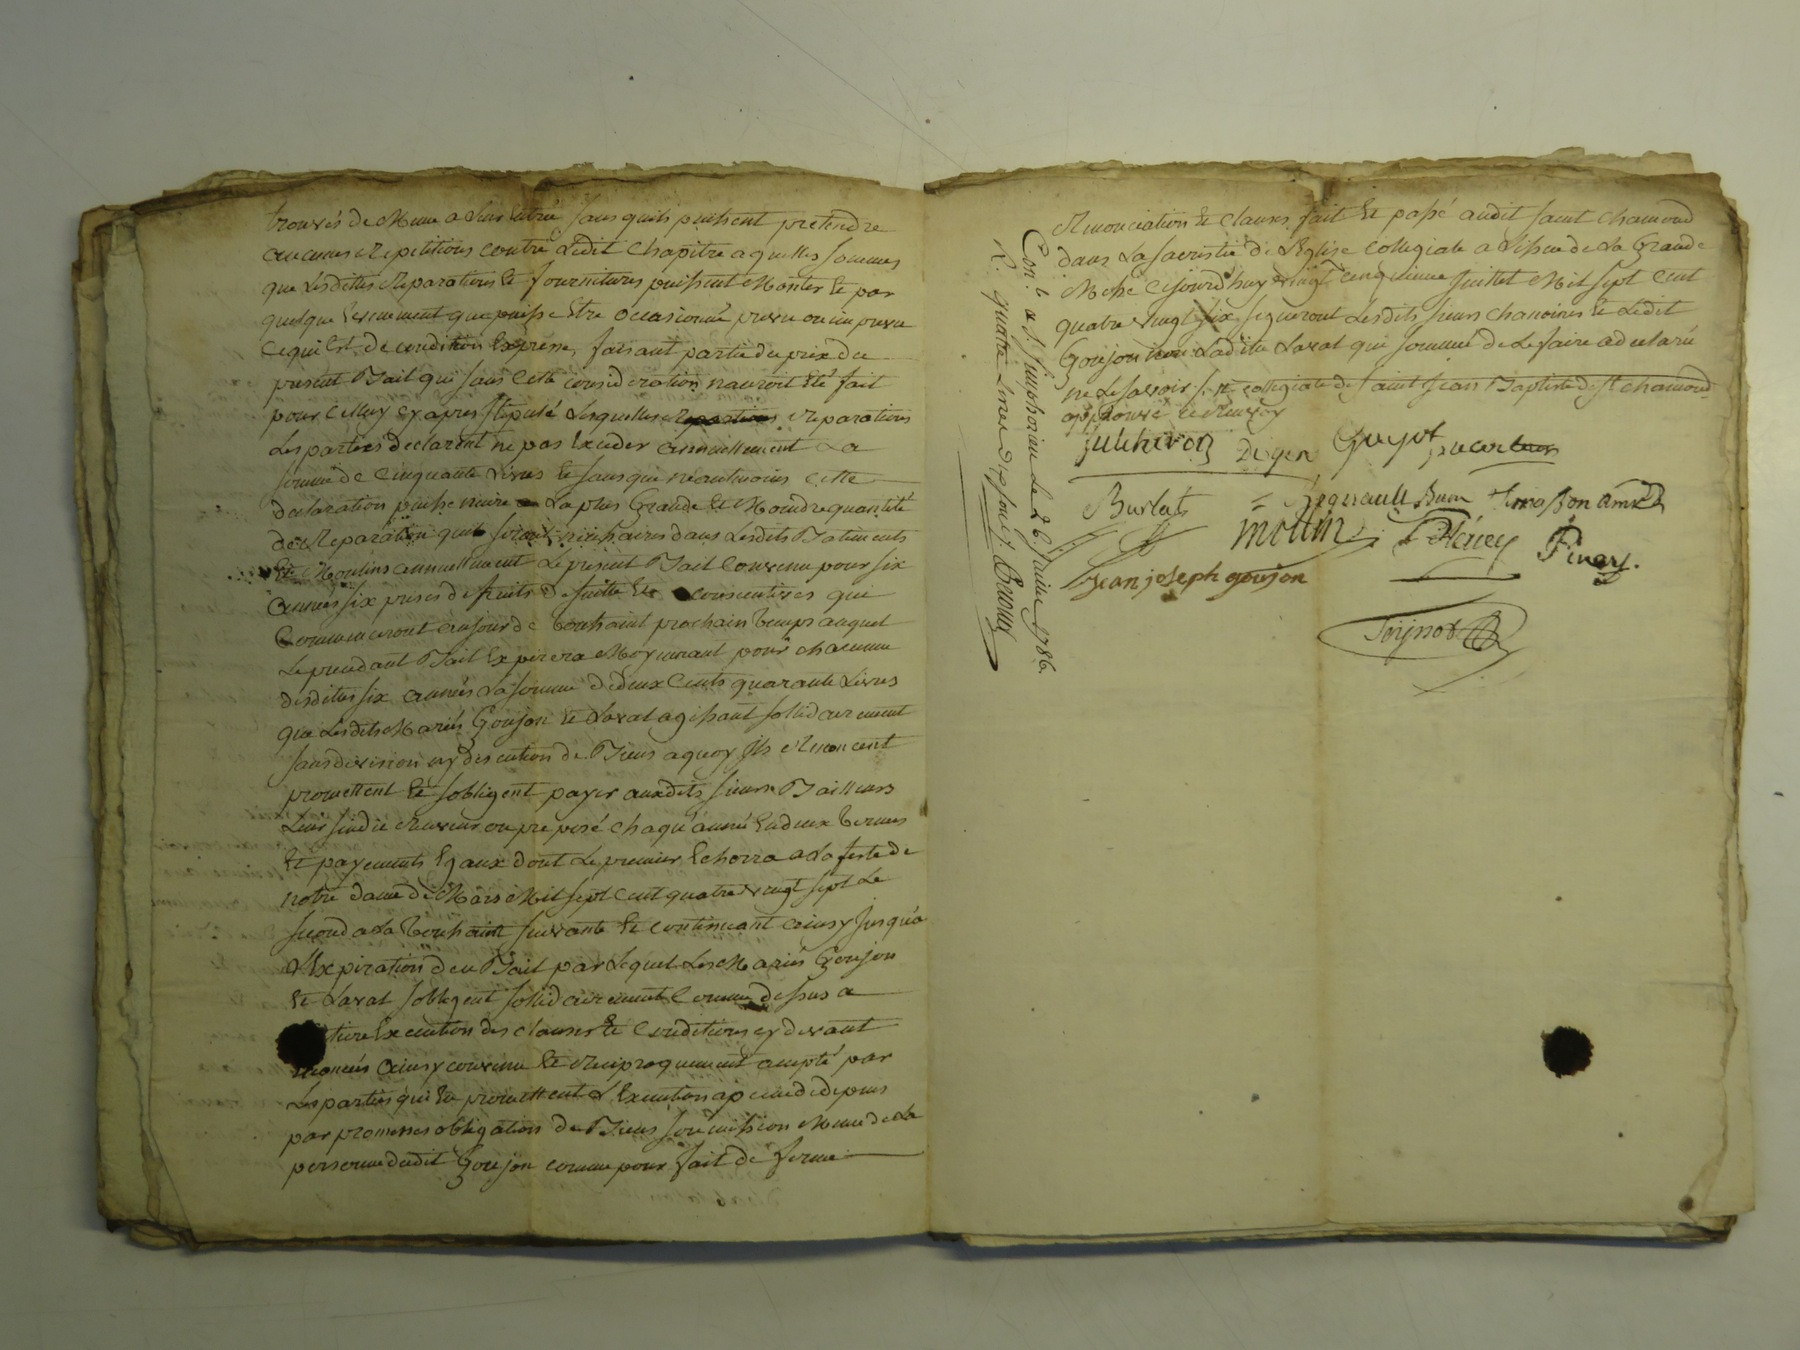 trouvés de Meme a leur Entrée sans quils puissent pretendre
aucunes Repetitions contre Ledit Chapitre a quelles sommes
que Lesdittes Reparations Et fournitures puissent Monter Et par
quelque Evenement que puisse Etre occasionné prevu ou imprevu
Ce qui Est de condition Expresse, faisant partie du prix du
present Bail qui sans Cette consideration nauroit Eté fait
pour Celluy cy apres stipulé Lesquelles Reparations
Les parties declarent ne pas Exceder annuellement La
somme de Cinquante Livres Et sans que neantmoins Cette
declaration puisse nuire a La plus Grande Et Moindre quantité
de Reparation qui seront necessaires dans Lesdits Batiments
Et Moulins annuellement Le present Bail Convenu pour six
années six prises de fruits de suitte Et consecutives qui
Commenceront au jour de Toussaint prochain Temps auquel
Le precedant Bail Expirera Moyennant pour chacune
desdittes six années La somme de deux Cents quarante Livres
que Lesdits Mariés Goujon Et Lavat agissant sollidairement
sans division ny discution de Biens a quoy ils Renoncent
promettent Et sobligent payer auxdits sieurs Bailleurs
Leur sindic Receveur ou preposé chaqu'année En deux Termes
Et payements Egaux dont Le premier Echerra a La feste de
notre dame de Mars Mil sept Cent quatre vingt sept Le
second a La Toussaint suivante Et continuant ainsy jusqu'a
L'Expiration du Bail par Lequel Les Mariés Goujon
Et Lavat sobligent sollidairement Comme dessus a
Execution des clauses Et Conditions cy devant
Enoncés ainsy convenu Et Reciproquement accepté par
Les parties qui En promettent L'Execution a peine de depens
par promesses obligation de Biens soumission Meme de La
personne dudit Goujon comme pour fait de ferme
Renonciation Et Clauses fait Et passé audit saint chamond
dans La sacristie de L'Eglise Collegiale a L'issue de La Grande
Messe Cejourd'huy vingt cinquieme Juillet Mil sept Cent
quatre vingt six signeront Lesdits sieurs chanoines Et Ledit
Goujon non Ladite Lavat qui sommé de Le faire a declaré
ne Le savoir collegiale de saint Jean Baptiste de St chamond
approuvé Le Renvoy
Julchiron Guyot
Burlat Regnault
moulin Pinay
Jean joseph goujon
Con.lé a S. Simphorien Le 26 1786
R. quatre Livres